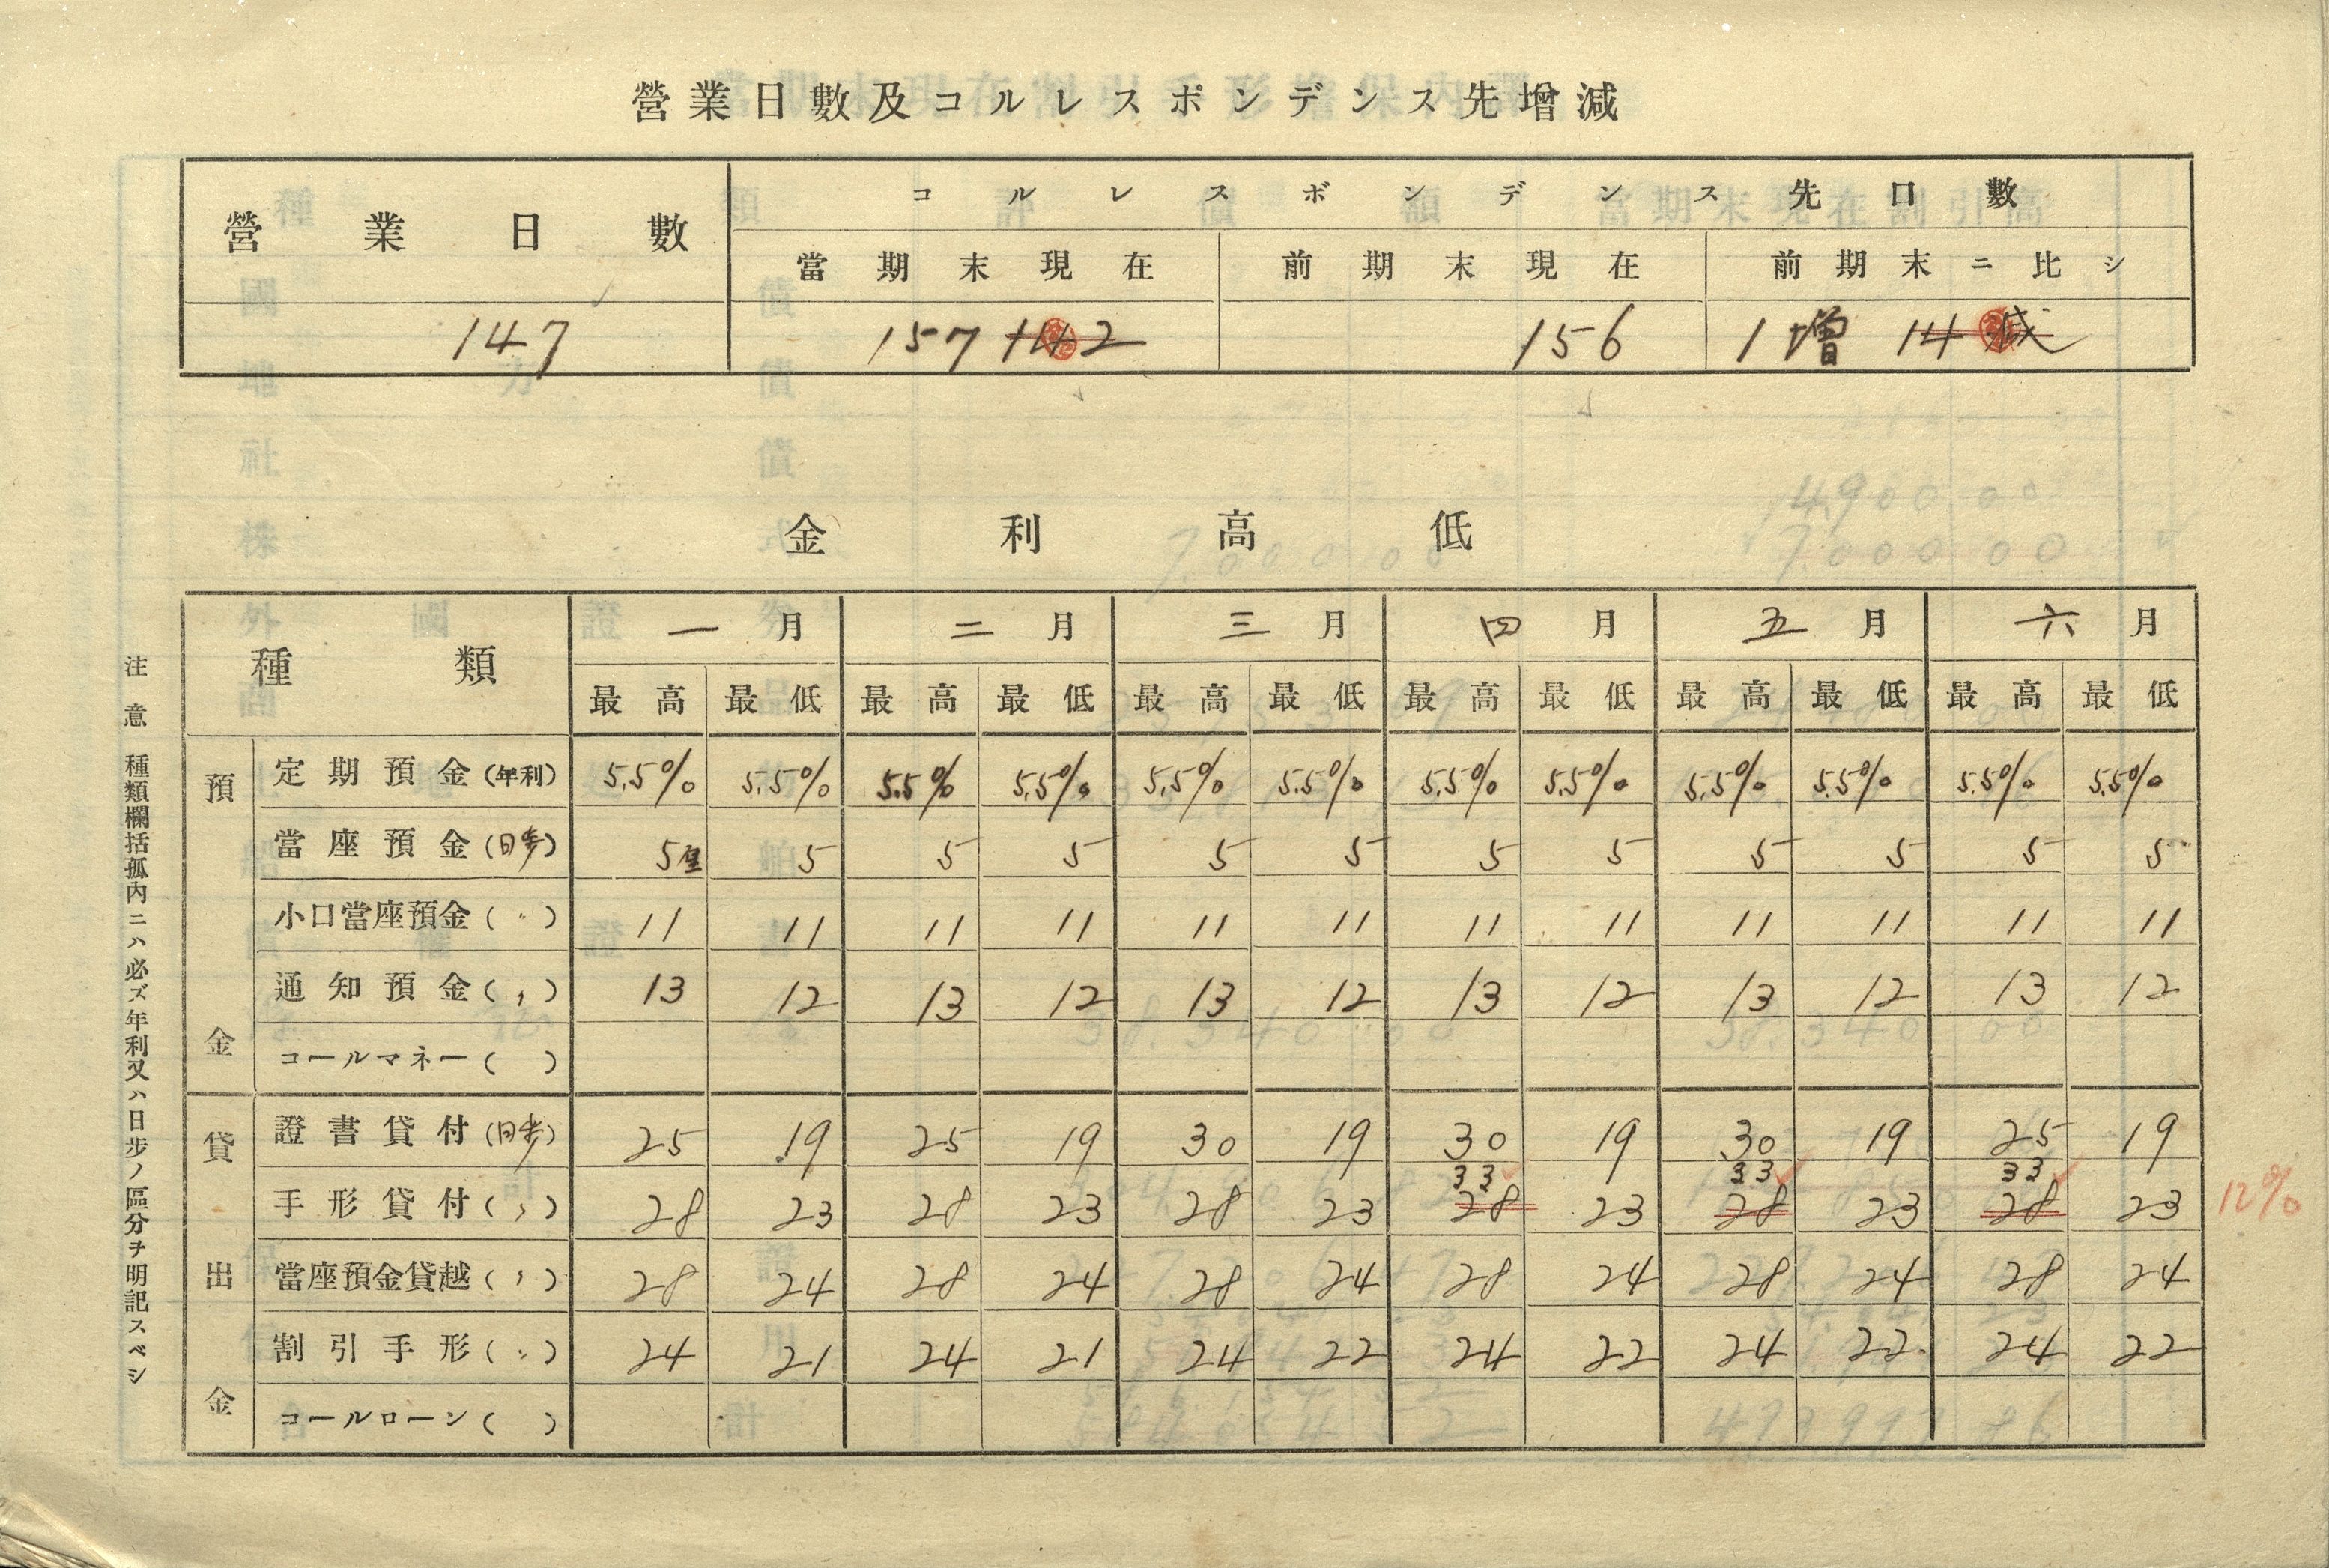 營業日數及コルレスポンデンス先增減
營業日數
コルレスポンデンス先口數
當期末現在 前期末現在 前期末ニ比シ
147 157 142 156 1增 14減
金利高低
種類 一月 二月 三月 四月 五月 六月
最高 最低 最高 最低 最高 最低 最高 最低 最高 最低 最高 最低
預金
定期預金(年利) 5.5% 5.5% 5.5% 5.5% 5.5% 5.5% 5.5% 5.5% 5.5% 5.5% 5.5% 5.5%
當座預金(日歩) 5厘 5 5 5 5 5 5 5 5 5 5 5
小口當座預金(〃) 11 11 11 11 11 11 11 11 11 11 11 11
通知預金(〃) 13 12 13 12 13 12 13 12 13 12 13 12
コールマネー( )
貸出金
證書貸付(日歩) 25 19 25 19 30 19 30 19 30 19 25 19
33 33 33
手形貸付(〃) 28 23 28 23 28 23 28 23 28 23 28 23 12%
當座預金貸越(〃) 28 24 28 24 28 24 28 24 28 24 28 24
割引手形(〃) 24 21 24 21 24 22 24 22 24 22 24 22
コールローン( )
注意 種類欄括孤內ニハ必ズ年利又ハ日步ノ區分ヲ明記スベシ